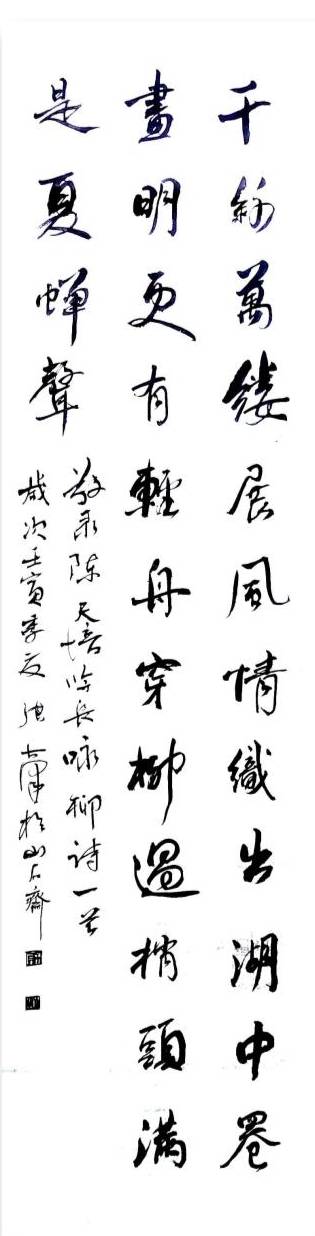 千絲萬縷展風情織出湖中罨
畫明更有輕舟穿柳過梢頭滿
是夏蝉聲
敬录陈天培吟长咏柳诗一首
歲次壬寅季夏於山石齋